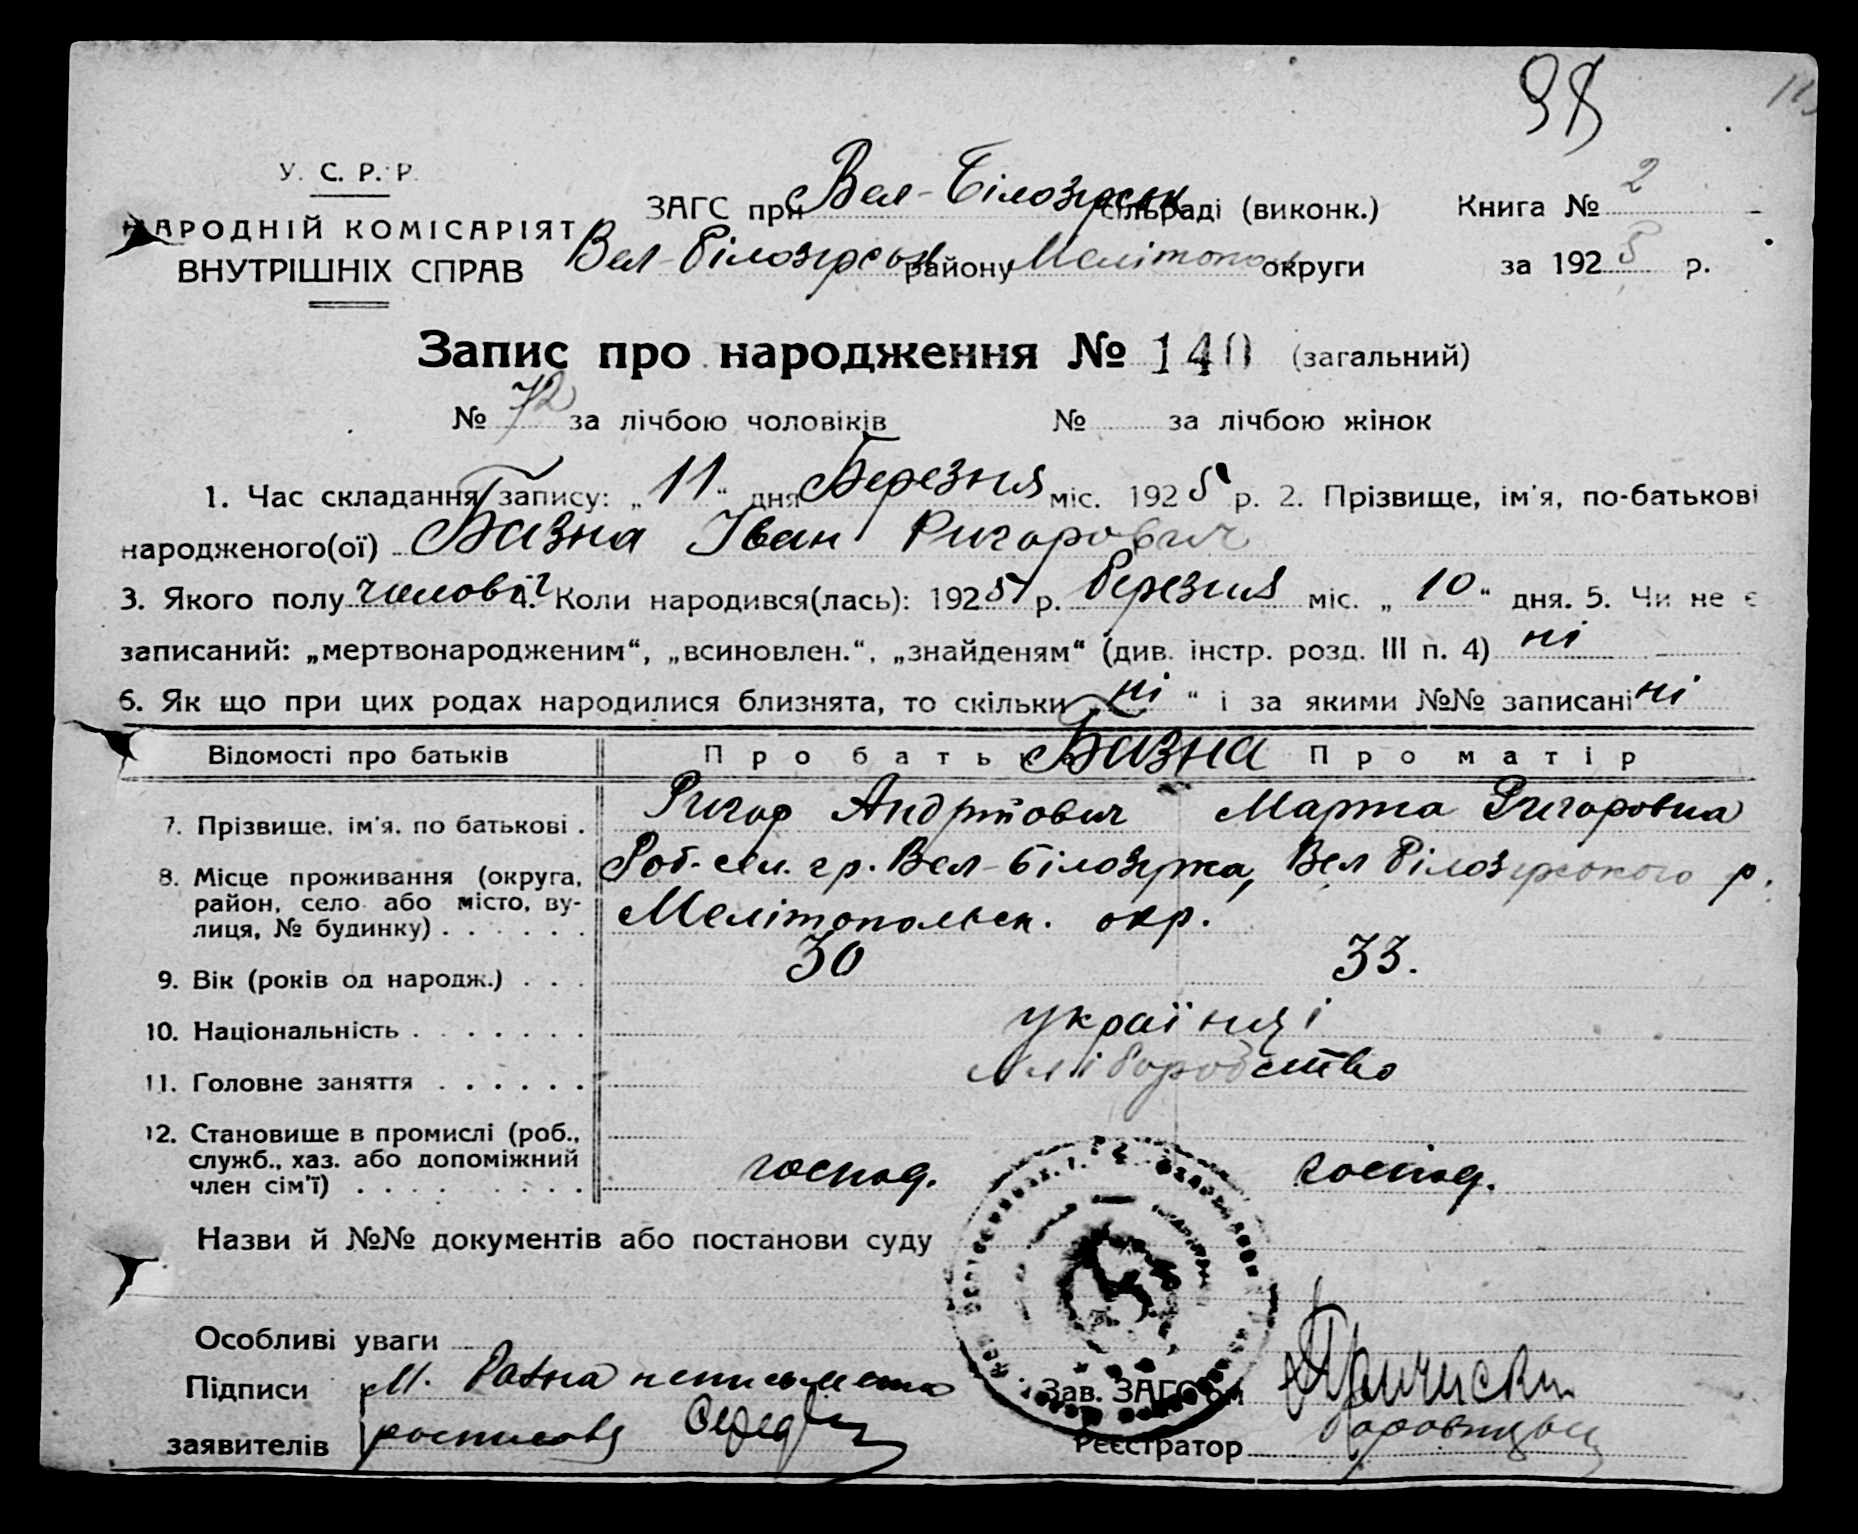 98
У. С. Р. Р.
НАРОДНІЙ КОМІСАРІЯТ
ВНУТРІШНІХ СПРАВ
ЗАГС при Вел-Білозірськ сільраді (виконк.)
Вел-Білозірськ району Мелітопол округи
Книга № 2
за 1925 р.
Запис про народження № 140 (загальний)
№ 72 за лічбою чоловіків № за лічбою жінок
1. Час складання запису: „11“ дня Березня міс. 1925 р. 2. Прізвище, ім'я, по-батькові
народженого(ої) Базна Іван Ригорович
3. Якого полу чоловіч 4. Коли народився(лась): 1925 р. березня міс. „10“ дня. 5. Чи не є
записаний: „мертвонародженим“, „всиновлен.“, „знайденям“ (див. інстр. розд. III п. 4) ні
6. Як що при цих родах народилися близнята, то скільки „ні“ і за якими №№ записані ні
Відомості про батьків Про батька Базна Про матір
7. Прізвище, ім'я, по батькові . Ригор Андрійович Марта Ригоровна
8. Місце проживання (округа, район, село або місто, вулиця, № будинку) . . . . . . Роб-сел. гр. Вел-Білозірка, Вел Білозірського р.
Мелітопольск. окр.
9. Вік (років од народж.) . . . 30 33.
10. Національність . . . . . . . українці
11. Головне заняття . . . . . . хліборобство
12. Становище в промислі (роб., служб., хаз. або допоміжний член сім'ї) . . . . . . . . . господ. господ.
Назви й №№ документів або постанови суду
Особливі уваги
Підписи М. Базна неписьменна
заявителів росписався
Зав. ЗАГС'ом
Реєстратор